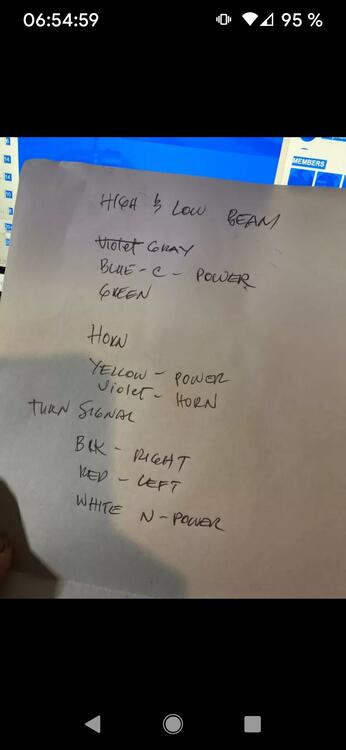 06:54:59
95 %
MEMBERS
HIGH & LOW BEAM
Violet GRAY
BLUE - C - POWER
GREEN
HORN
YELLOW - POWER
Violet - HORN
TURN SIGNAL
BLK - RIGHT
RED - LEFT
WHITE N - POWER